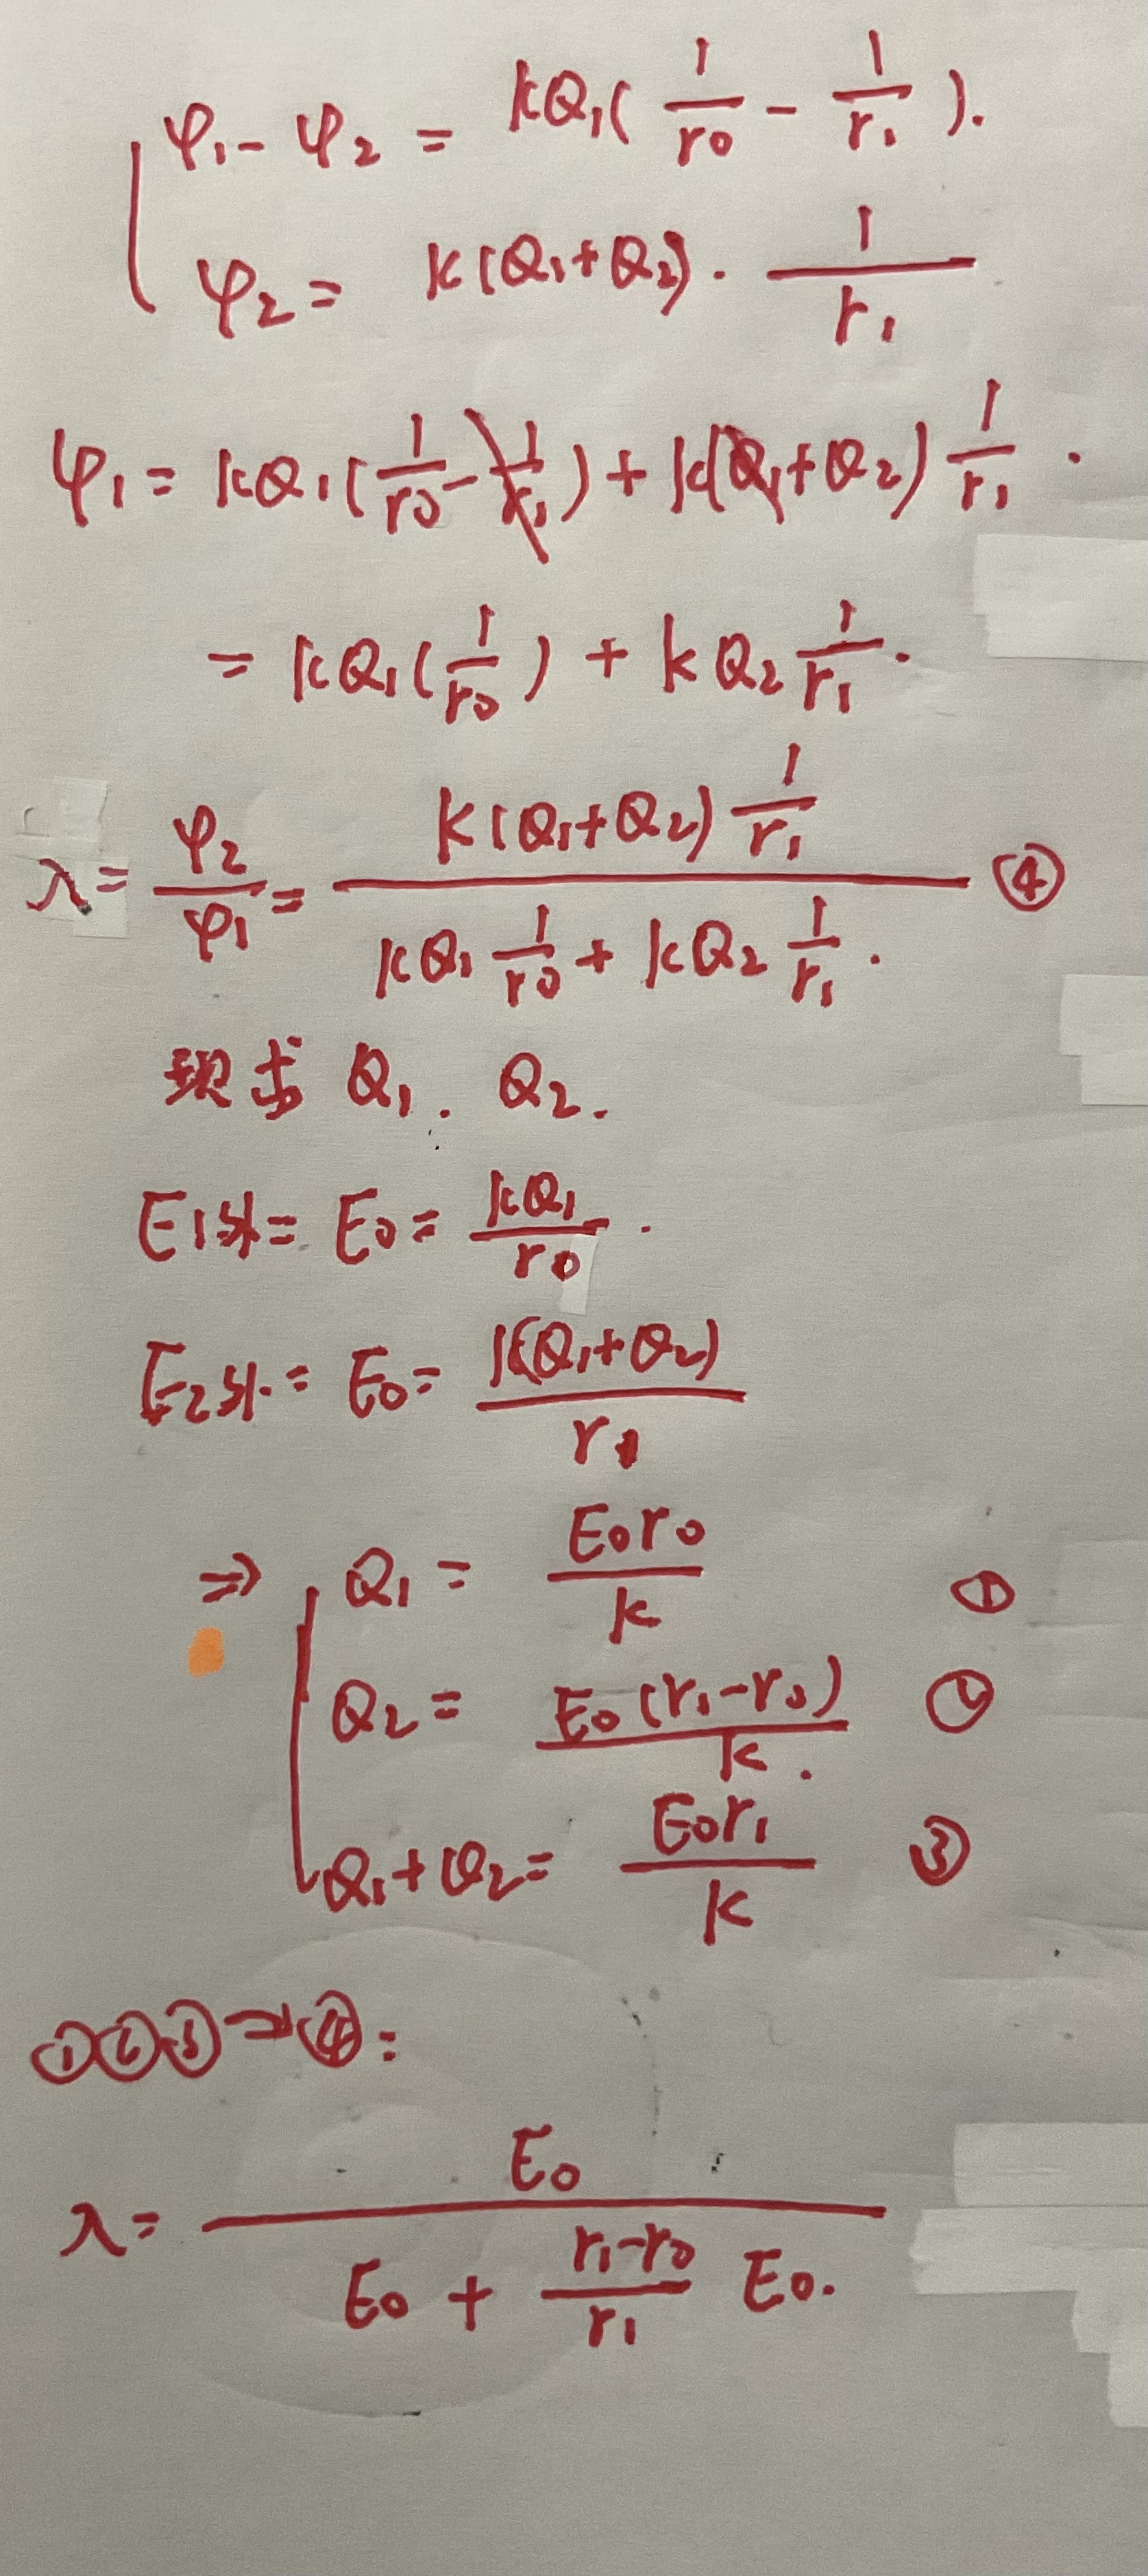 φ₁ - φ₂ = kQ₁( 1/r₀ - 1/r₁ ).
φ₂ = k(Q₁+Q₂) · 1/r₁
φ₁ = kQ₁( 1/r₀ - 1/r₁ ) + k(Q₁+Q₂) 1/r₁ .
= kQ₁( 1/r₀ ) + kQ₂ 1/r₁ .
λ = φ₂/φ₁ = k(Q₁+Q₂) 1/r₁ / kQ₁ 1/r₀ + kQ₂ 1/r₁ . ④
现求 Q₁. Q₂.
E₁外 = E₀ = kQ₁/r₀ .
E₂外. = E₀ = k(Q₁+Q₂)/r₁
⇒ Q₁ = E₀r₀/k ①
Q₂ = E₀(r₁-r₀)/k . ②
Q₁+Q₂ = E₀r₁/k ③
①②③→④:
λ = E₀ / E₀ + r₁-r₀/r₁ E₀.